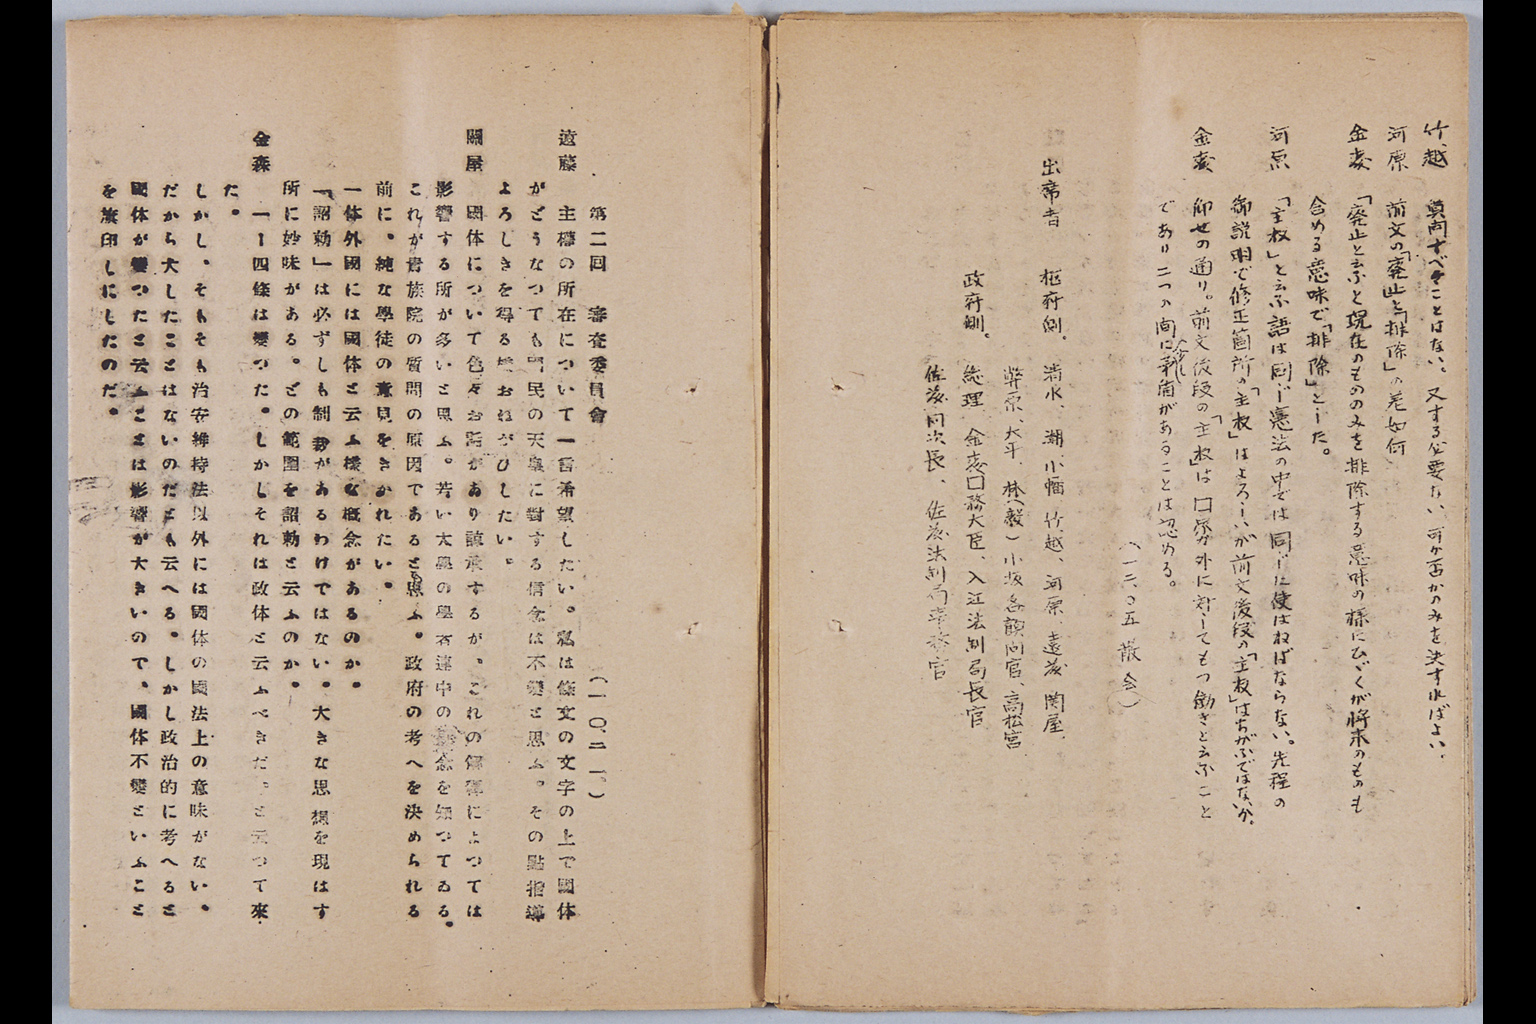 竹越 質問すべきことはない。又する必要ない 可か否かのみを決すればよい。
河原 前文の「廃止」と「排除」の差如何
金森 「廃止と云ふと現在のもののみを排除する意味の様にひゞくが将来のものも
含める意味で「排除」とした。
河原 「主权」と云ふ語は同じ憲法の中では同じに使はねばならない。先程の
御説明で修正箇所の「主权」はよろしいが前文後段の「主权」はちがふではないか。
金森 仰せの通り。前文後段の「主权」は 対してもつ働きと云ふこと
であり二つの間に矛盾があることは認める。
(一二、〇五 散会)
出席者 枢府側。 清水、潮、小幡 竹越、河原、遠藤 関屋、
幣原、大平、林(毅) 小坂各顧問官、高松宮
政府側。 総理、金森国務大臣、入江法制局長官
佐藤同次長、佐藤法制局事務官
第二回 審査委員會 (一〇、二一、)
遠藤 主權の所在について一言希望したい。私は條文の文字の上で國体
がどうなつても國民の天皇に對する信念は不變と思ふ。その點指導
よろしきを得る様おねがひしたい。
關屋 國体について色々お話があり謹承するが、これの解釋によつては
影響する所が多いと思ふ。若い大學の學者連中の 念を知つてゐる。
これが貴族院の質問の原因であると思ふ。政府の考へを決められる
前に、純な學徒の意見をきかれたい。
一体外國には國体と云ふ様な概念があるのか。
「詔勅」は必ずしも制裁があるわけではない。大きな思想を現はす
所に妙味がある。どの範圍を詔勅と云ふのか。
金森 一―四條は變つた。しかしそれは政体と云ふべきだ。と云つて來
た。
しかし、そもそも治安維持法以外には國体の國法上の意味がない。
だから大したことはないのだとも云へる。しかし政治的に考へると
國体が變つたと云ふことは影響が大きいので、國体不變といふこと
を旗印しにしたのだ。